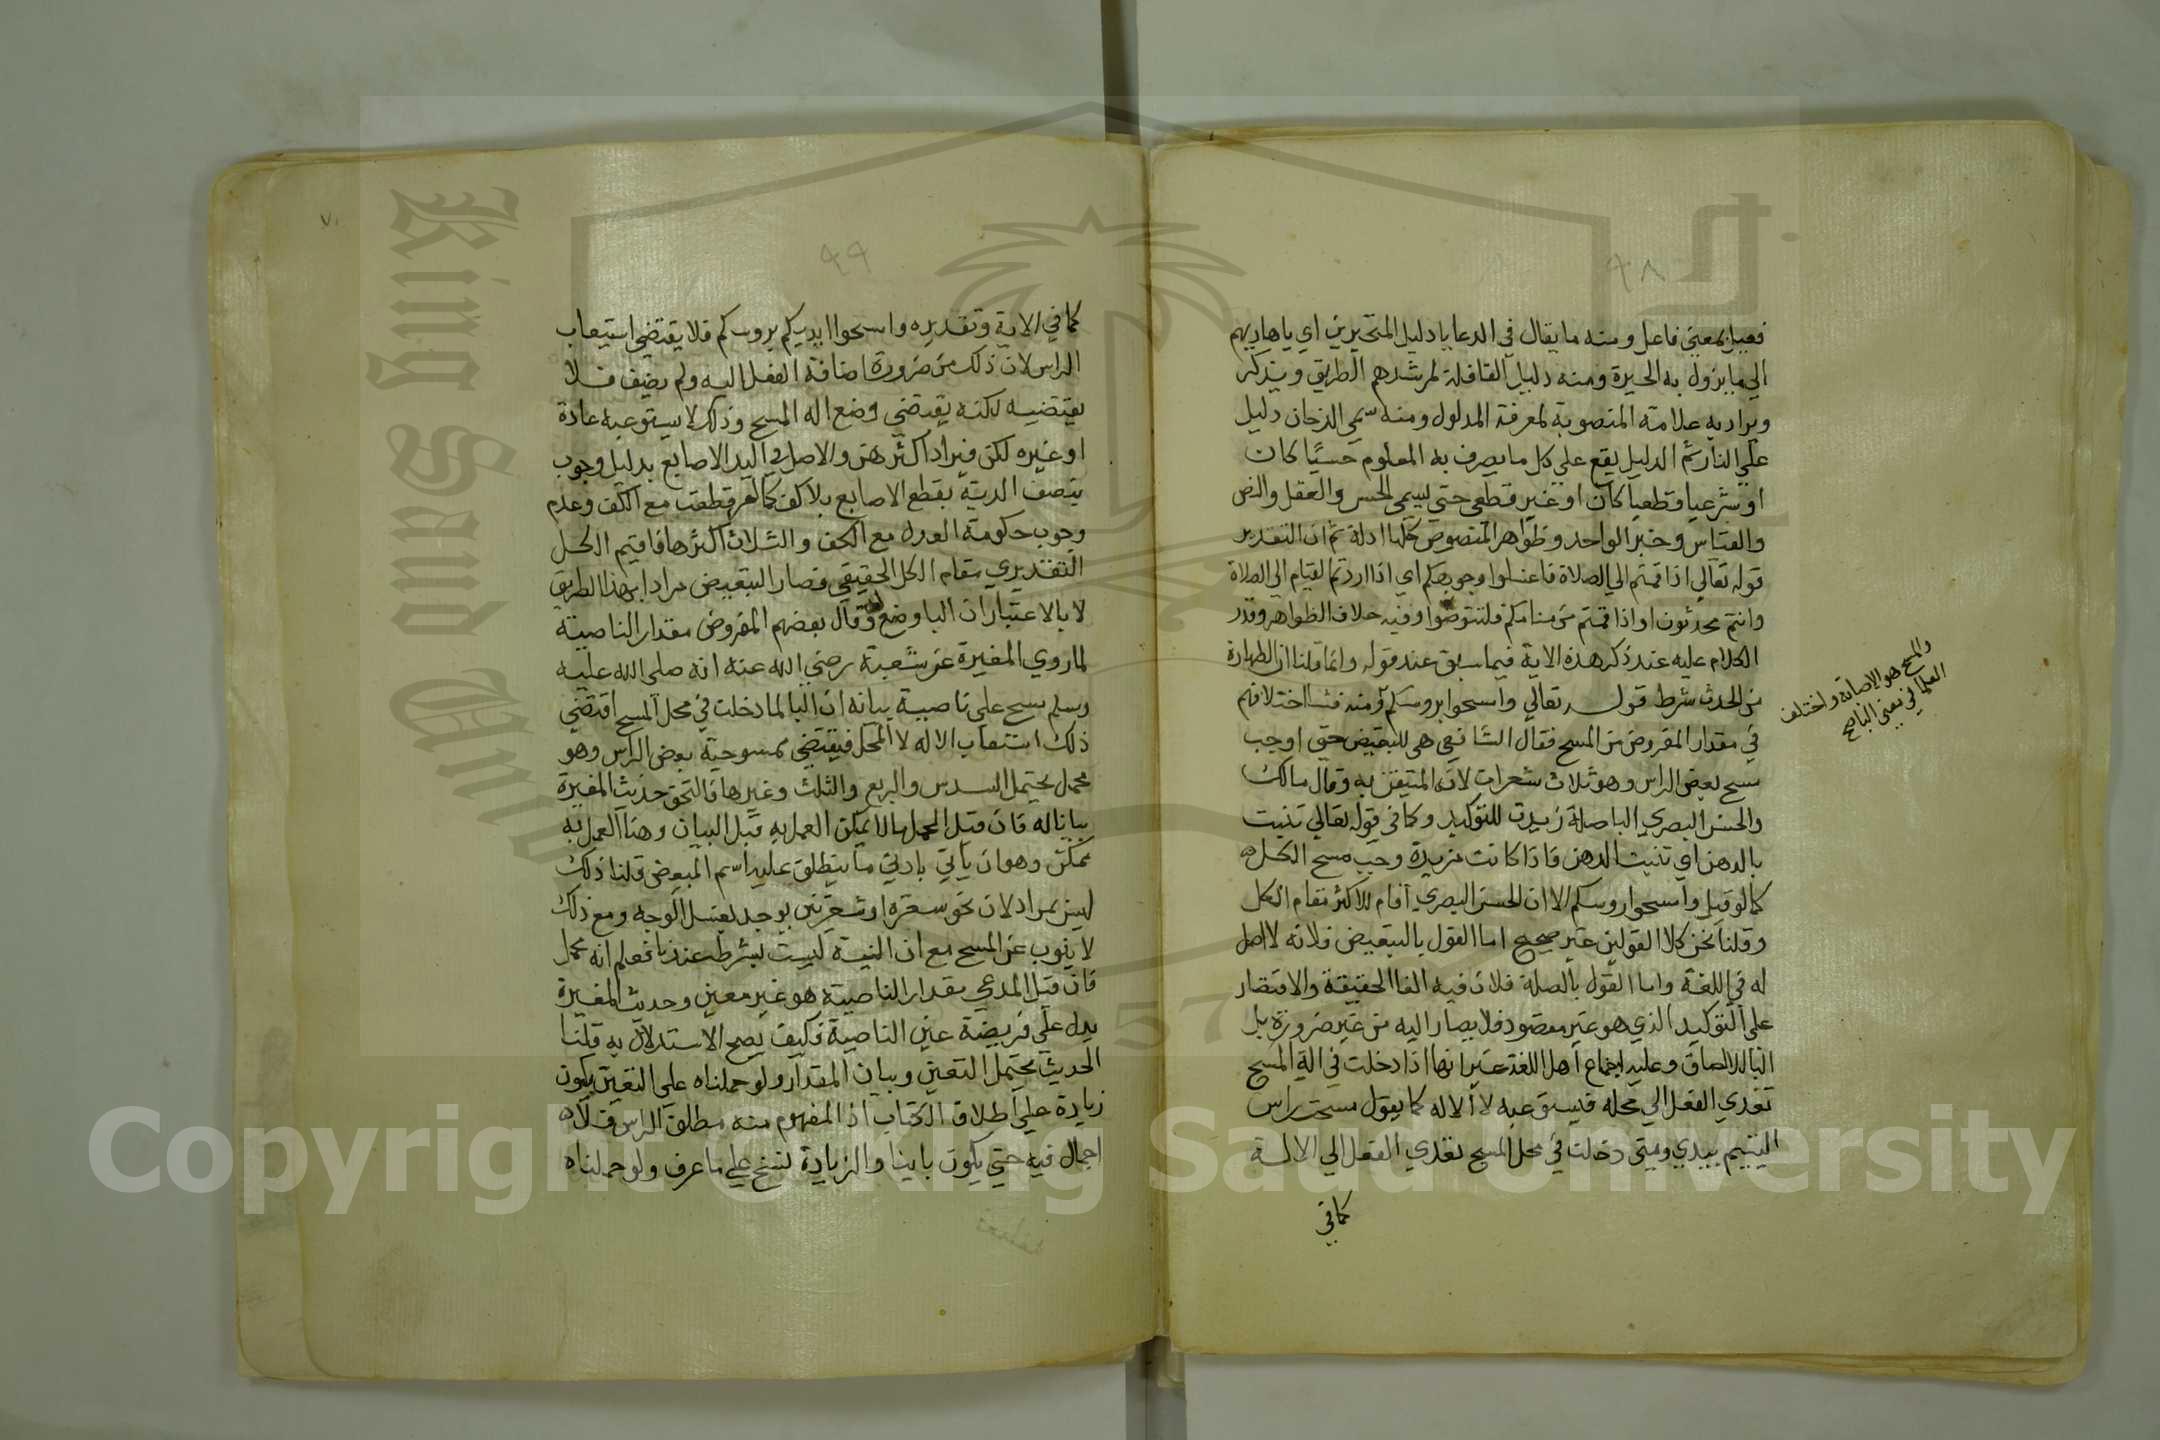 ٩٨
فعيل بمعنى فاعل ومنه ما يقال في الدعا يا دليل المتحيرين اي يا هاديهم
الي ما يزول به الحيرة ومنه دليل القافلة لمرشدهم الطريق ويذكر
ويراد به علامته المنصوبة لمعرفة المدلول ومنه سمي الدخان دليل
علي النار ثم الدليل يقع علي كل ما يعرف به المعلوم حسيًا كان
او شرعيا وقطعيا كان او غير قطعي حتي يسمي الحس والعقل والنص
والقياس وخبر الواحد وظواهر المنصوص كلها ادلة ثم ان التقدير
قوله تعالي اذا قمتم الي الصلاة فاغسلوا وجوهكم اي اذا اردتم القيام الي الصلاة
وانتم محدثون او اذا قمتم من منامكم فلتتوضوا وفيه خلاف الظواهر وقدر
الكلام عليه عند ذكر هذه الاية فيما سبق عند قوله وانما قلنا ان الطهارة
من الحدث شرط قوله تعالي وامسحوا بروسكم منه اختلافهم
في مقدار المفروض من المسح فقال الشافعي هي للتبعيض حتي اوجب
مسح بعض الراس وهو ثلاث شعرات لان المتيقن به وقال مالك
والحسن البصري البا صلة زيدت للتوكيد وكما في قوله تعالي تنبت
بالدهن اي تنبت الدهن فاذا كانت مزيدة وجب مسح الكل
كما لو قيل وامسحوا روسكم الا ان الحسن البصري اقام للاكثر مقام الكل
وقلنا نحن كلا القولين غير صحيح اما القول بالتبعيض فلانه لا اصل
له في اللغة واما القول بالصلة فلان فيه الغا الحقيقة والاقتصار
علي التوكيد الذي هو غير مقصود فلا يصار اليه من غير ضرورة بل
البا للالصاق وعليه اجماع اهل اللغة غير انها اذا دخلت في الة المسح
تعدي الفعل الي محله فيستوعبه لا الاله كما يقول مسحت راس
اليتيم بيدي ومتي دخلت في محل المسح تعدي الفعل الي الالة
كما في
والمسح هو الاصابة واختلف
العلما في
٩٩
٧١
كما في الاية وتقديره وامسحوا ايديكم بروسكم فلا يقتضي استيعاب
الراس لان ذلك من ضرورة اضافة الفعل اليه ولم يضف فلا
يقتضيه لكنه يقتضي وضع اله المسح وذلك لا يستوعبه عادة
او غيره لكن فيراد اكثرهن والاصل في اليد الاصابع بدليل وجوب
نصف الدية بقطع الاصابع بلا كف كما لو قطعت مع الكف وعدم
وجوب حكومة العدل مع الكف والثلاث اكثرها فاقيم الكل
التقديري مقام الكل الحقيقي فصار التبعيض مرادا بهذا الطريق
لا بالاعتبار ان البا وضع له وقال بعضهم المفروض مقدار الناصية
لما روي المغيرة عن شعبة رضي الله عنه انه صلى الله عليه
وسلم مسح على ناصية بيانه ان البا لما دخلت في محل المسح اقتضي
ذلك استيعاب الاله لا المحل فيقتضي ممسوحية بعض الراس وهو
مجمل يحتمل السدس والربع والثلث وغيرها فالتحق حديث المغيرة
بيانا له فان قيل المجمل ما لا يمكن العمل به قبل البيان وهنا العمل به
ممكن وهو ان ياتي بادني ما ينطلق عليه اسم المبعض قلنا ذلك
ليس بمراد لان نحو شعرة او شعرتين يوجد بغسل الوجه ومع ذلك
لا ينوب عن المسح مع ان النية ليست بشرط عندنا فعلم انه مجمل
فان قيل المدعي مقدار الناصية هو غير معين وحديث المغيرة
يدل علي فريضة عين الناصية فكيف يصح الاستدلال به قلنا
الحديث يحتمل التعين وبيان المقدار ولو حملناه علي التعين يكون
زيادة علي اطلاق الكتاب اذ المفهوم منه مطلق الراس فلا
اجمال فيه حتي يكون بايينا والزيادة نسخ علي ما عرف ولو حملناه
King Saud University
1957
Copyright © King Saud University